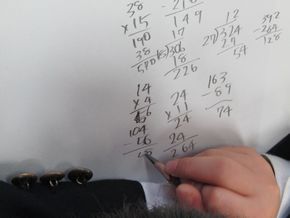 38
x15
190
38
570
-216
149
17
18)306
18
226
12
27)324
27
54
392
-264
128
14
x4
56
104
-16
24
x11
24
24
264
163
-89
74